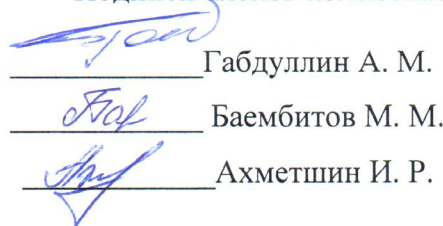 Габдуллин А. М.
Баембитов М. М.
Ахметшин И. Р.